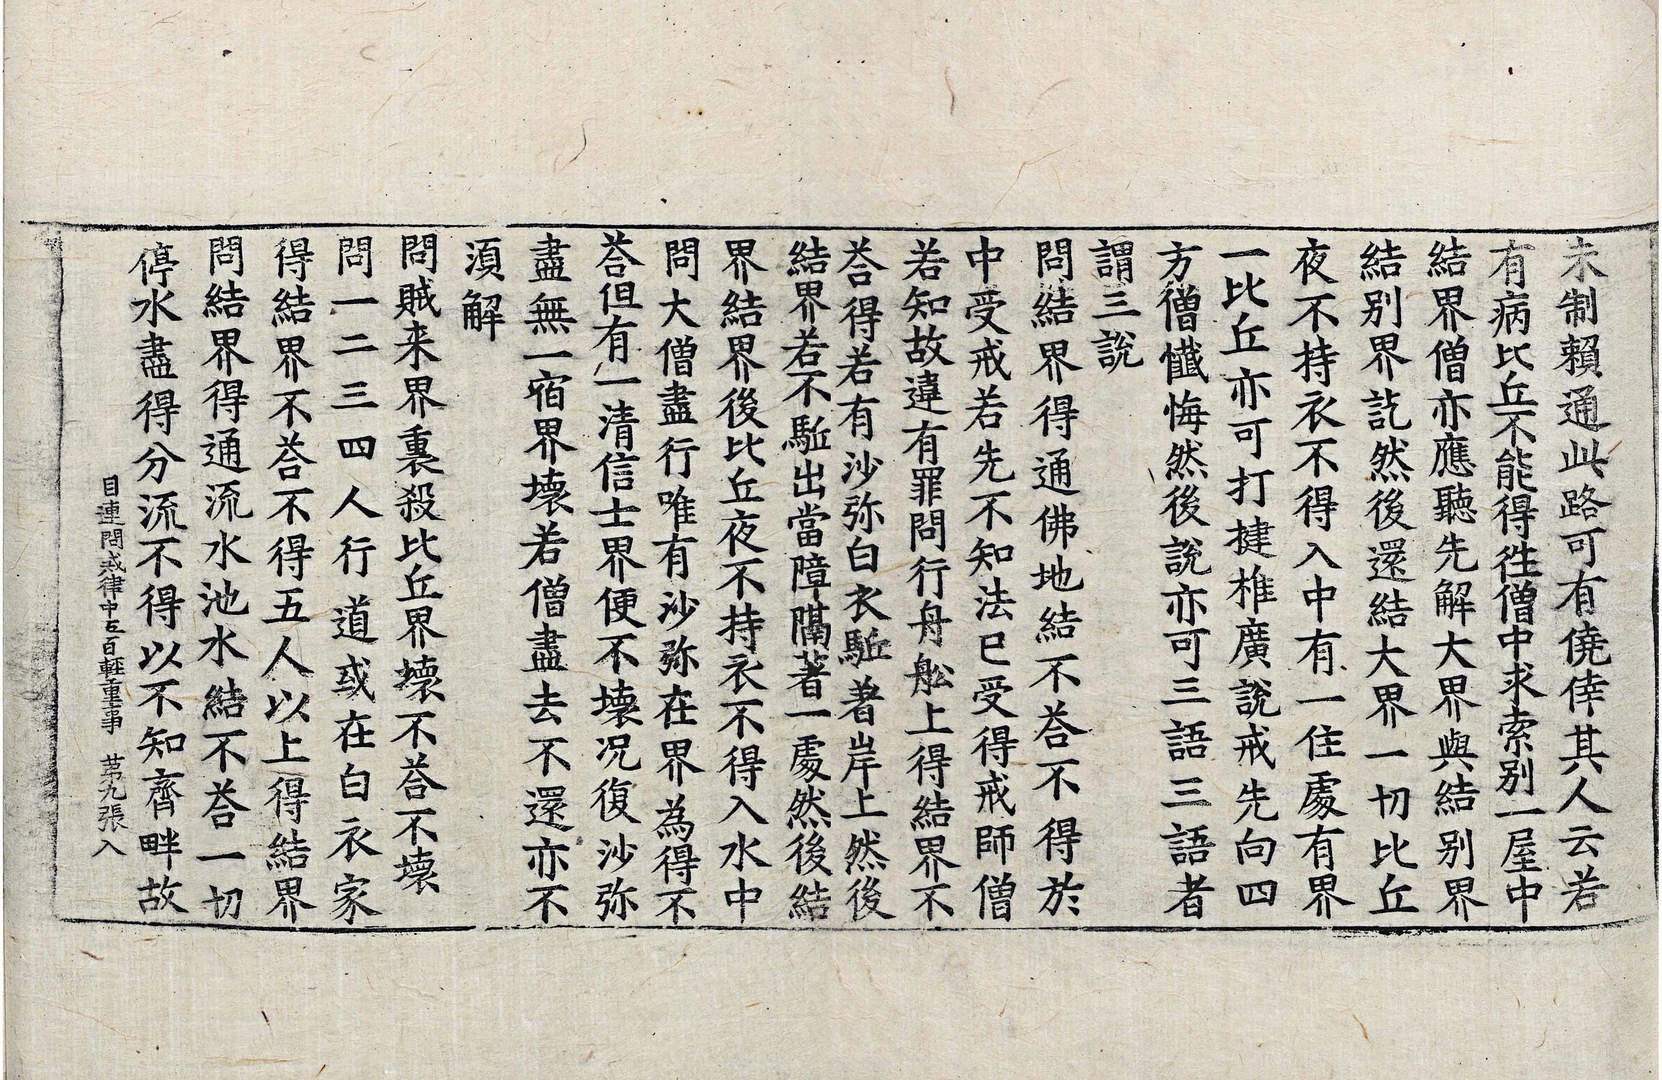 未制賴通此路可有僥倖其人云若
有病比丘不能得徃僧中求索别一屋中
結界僧亦應聽先解大界與結别界
結别界訖然後還結大界一切比丘
夜不持衣不得入中有一住處有界
一比丘亦可打揵椎廣說戒先向四
方僧懺悔然後說亦可三語三語者
謂三說
問結界得通佛地結不荅不得於
中受戒若先不知法已受得戒師僧
若知故違有罪問行舟舩上得結界不
荅得若有沙弥白衣駈著岸上然後
結界若不駈出當障隔著一處然後結
界結界後比丘夜不持衣不得入水中
問大僧盡行唯有沙弥在界為得不
荅但有一清信士界便不壞况復沙弥
盡無一宿界壞若僧盡去不還亦不
湏解
問賊来界裏殺比丘界壞不荅不壞
問一二三四人行道或在白衣家
得結界不荅不得五人以上得結界
問結界得通流水池水結不荅一切
停水盡得分流不得以不知齊畔故
目連問戒律中五百輕重事 苐九張 入